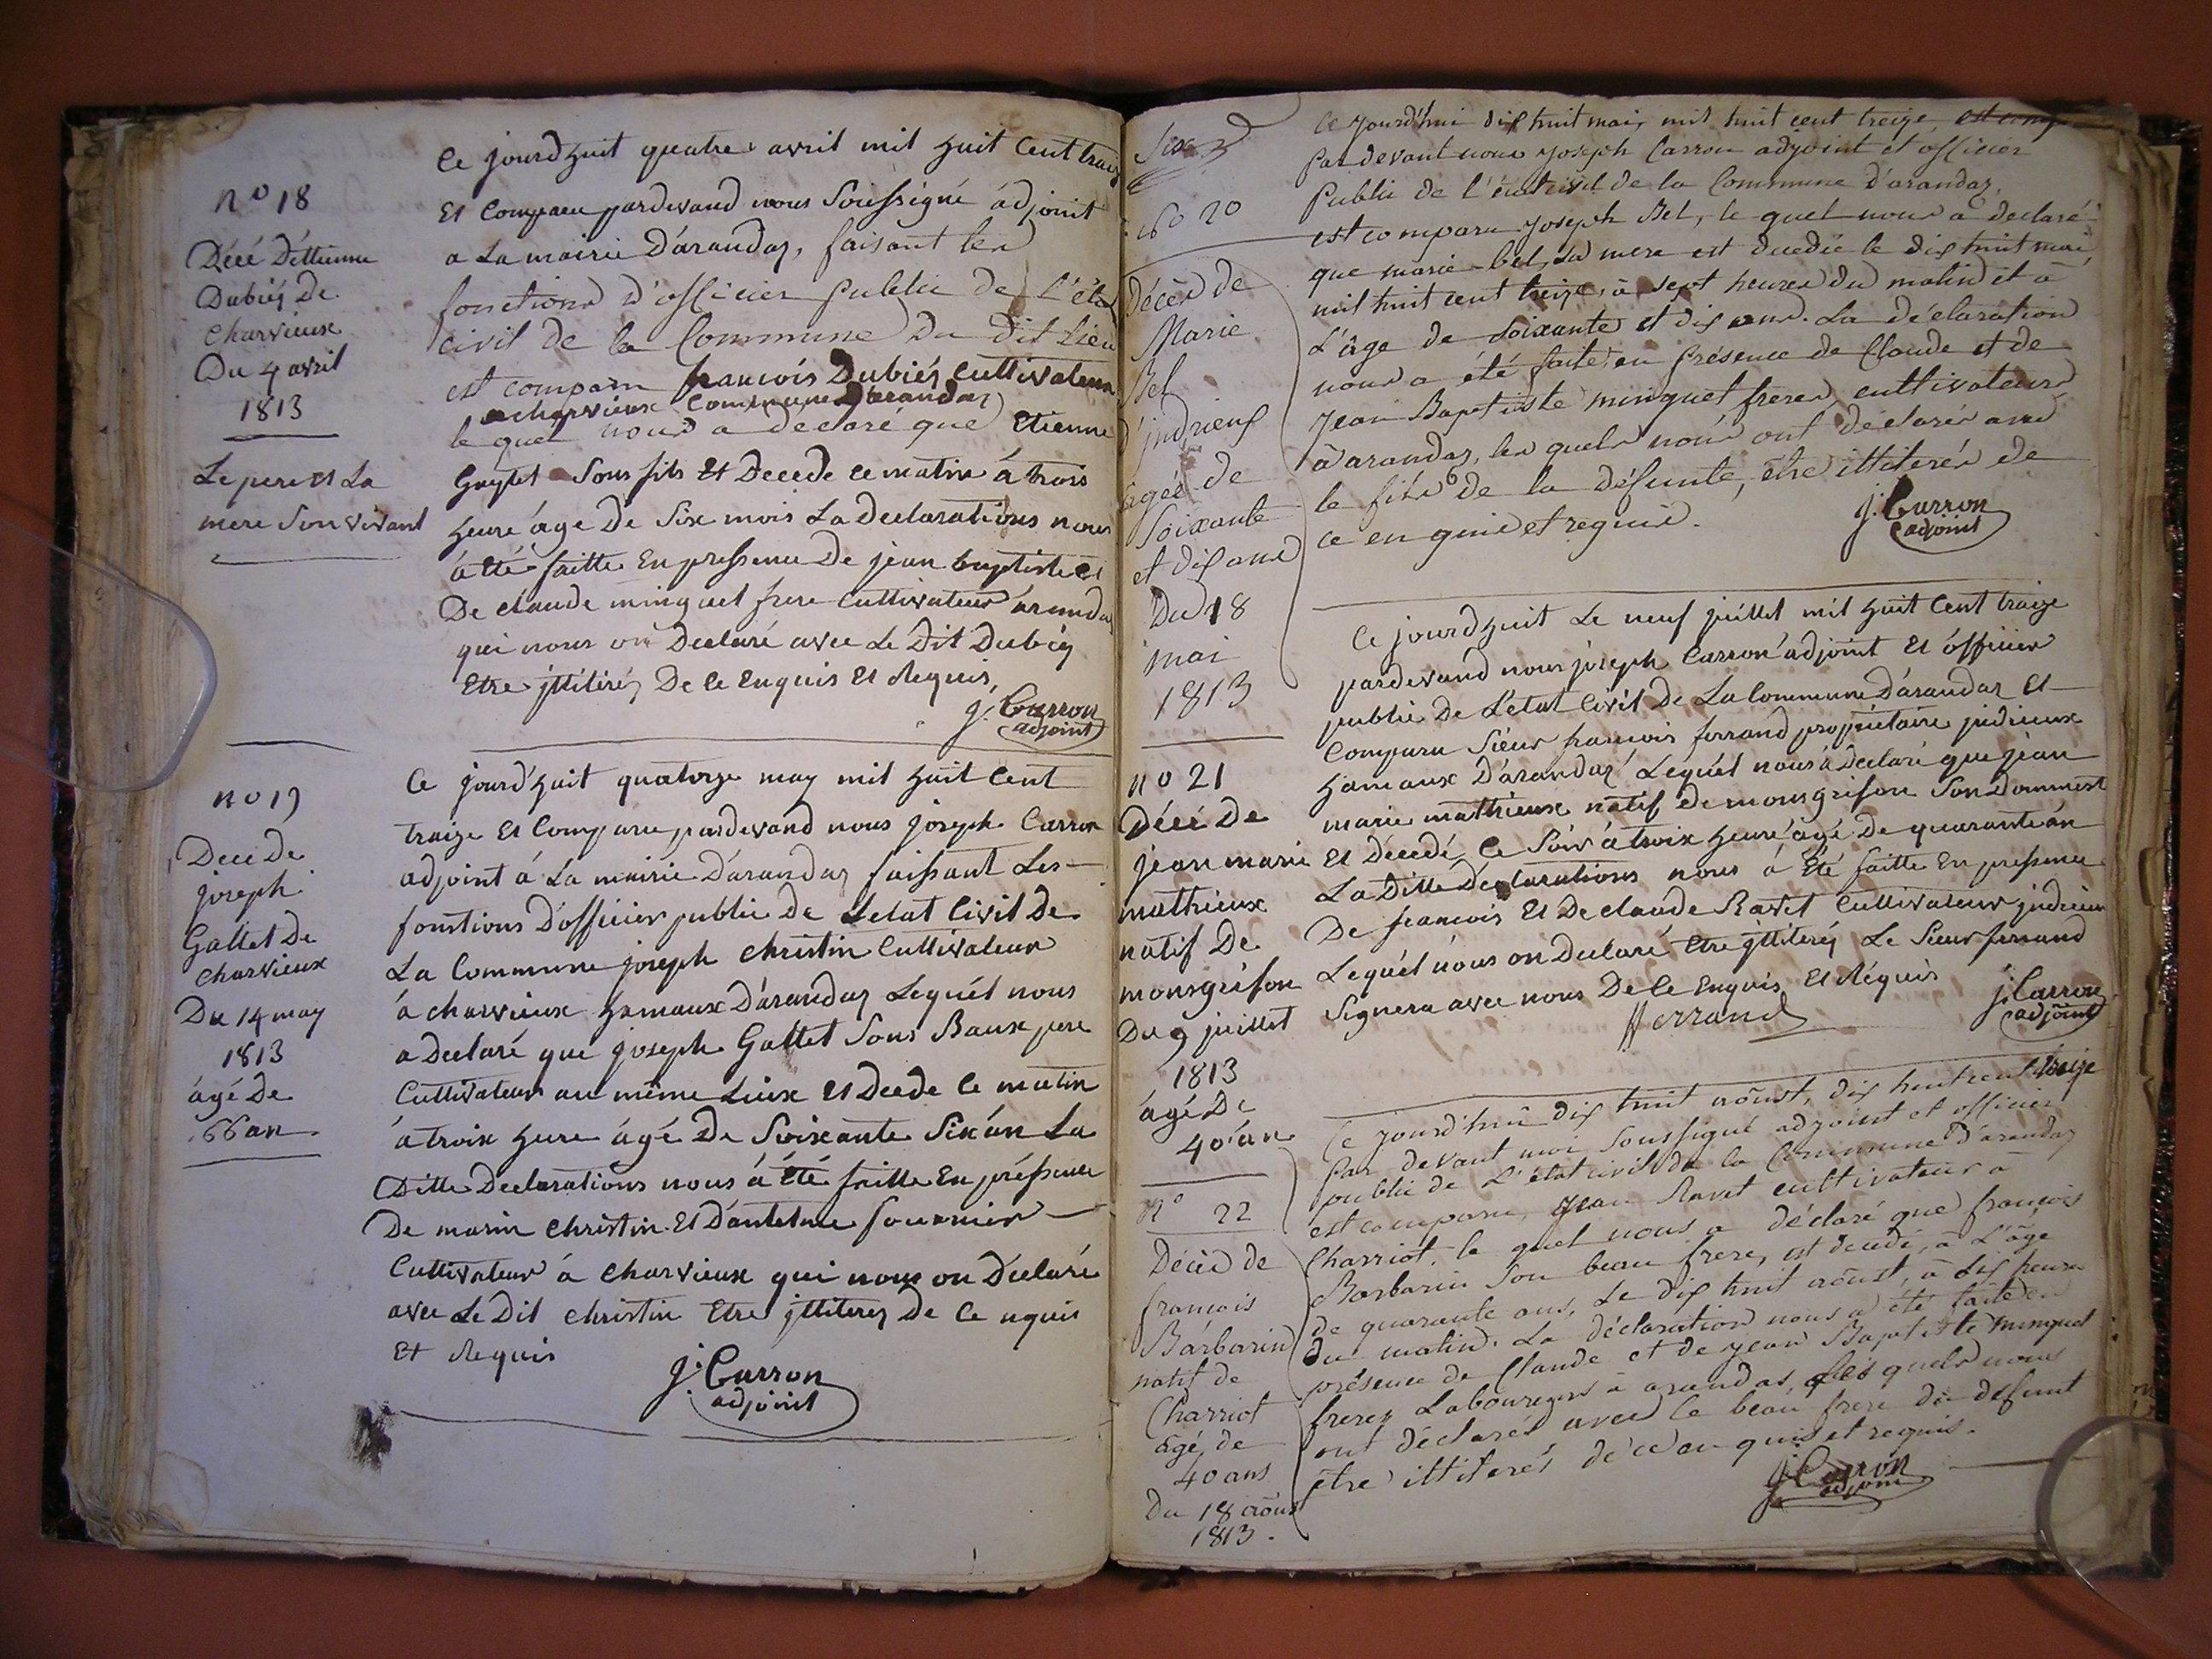 n° 18
Décé D'éttienne
Dubiéz De
Charvieux
Du 4 avril
1813
Le pere et La
mere Son vivant
Ce jourdhuit quatre avril mil huit Cent traize
Et Comparu pardevand nous Soussigné adjoint
a La mairie D'arandaz, faisant les
fonctions d'officier Public de L'état
Civil de la Commune Du Dit Lieu
est comparu francois Dubiéz Cultivateur
a charvieux Commune D'arandaz
le quel nous a declaré que Etienne
Sons fils Et Decede ce matin à trois
heure âge De Six mois La declarations nous
à été faitte En pressence De jean baptiste et
De claude minguet frere Cultivateur arandaz
qui nous on Declaré avec Le Dit Dubiéz
Etre jllitéréz De Ce Enquis Et Requis,
J. Carron
adjoint
n° 19
Decé De
joseph
Gallet De
Charvieux
Du 14 may
1813
âgé De
66 an
Ce jourd'huit quatorze may mil huit Cent
traize Et Comparu pardevand nous joseph Carron
adjoint à La mairie D'arandaz faissant Les
fonctions D'officier public De Letat Civil De
La Commune joseph Christin Cultivateur
à charvieux hamaux D'arandaz Lequél nous
a Declaré que joseph Gallet Sons Baux pere
Cultivateur au même Lieux Et Decede Ce matin
à troix heure âgé De Soixante Six án La
Ditte Declarations nous á été faitte En préssence
De marin Christin Et D'antelme fournier
Cultivateur à Charvieux qui nous on Déclaré
avec Le Dit Christin Etre jlliterez De Ce nquis
Et Requis
J. Carron
adjoint
n° 20
Décès de
Marie
Bel
d'indrieux
agée de
Soixante
et dix ans
Du 18
mai
1813
Ce jourd'hui dix huit mai, mil huit cent treize,
Par devant nous joseph Carron adjoint et officier
Public de l'état civil de la Commune d'arandaz,
est comparu joseph Bel, le quel nous a declaré
que marie bel, sa mere est decedée le dix huit mai,
mil huit cent treize, à sept heures du matin et à
L'âge de Soixante et dix ans. La déclaration
nous a été faite en Présence de Claude et de
Jean Baptiste minguet freres cultivateurs
à arandaz, les quels nous ont déclarés avec
le fils de la défunte, être illiterés de
ce en quis et requis.
J. Carron
adjoint
n° 21
Décé De
jean marie
mathieux
natif De
monsgrifon
Du 9 juillet
1813
âgé De
40 an
Ce jourdhuit Le neuf juillet mil huit Cent traize
pardevand nous joseph Carron adjoint Et officier
public De Letat Civil De La Commune D'arandaz Et
Comparu Sieur francois ferrand propriétaire jndrieux
hamaux D'arandaz Lequél nous à Declaré que jean
marie mathieux natif de monsgrifon Son Domment
Et Décedé Ce Soir à troix heure âgé De quarante án
La Ditte Declarations nous á été faitte En pressence
De francois Et De claude Ravet Cultivateur jndrieux
Lequél nous on Declaré Etre jlliteréz Le Sieur ferrand
Signera avec nous De Ce Enquis Et Réquis
fferrand
J. Carron
adjoint
N° 22
Décès de
francois
Barbarin
natif de
Charriot
âgé de
40 ans
Du 18 aoûst
1813.
Ce jourd'hui dix huit aoûst, dix huit cent treize
Par devant moi Soussigné adjoint et officier
public de L'état civil de la Commune d'arandaz
est comparu, Jean Ravet cultivateur à
Charriot, le quel nous a déclaré que francois
Barbarin Son beau frere, est decedé, à L'âge
de quarante ans, Le dix huit aoûst, à dix heures
du matin. La déclaration nous a été faite en
présence de Claude et de jean Baptiste minguet
freres Laboureurs à arandas, Les quels nous
ont déclarés avec le beau frere du défunt
être illiterés de ce en quis et requis.
J. Carron
adjoint